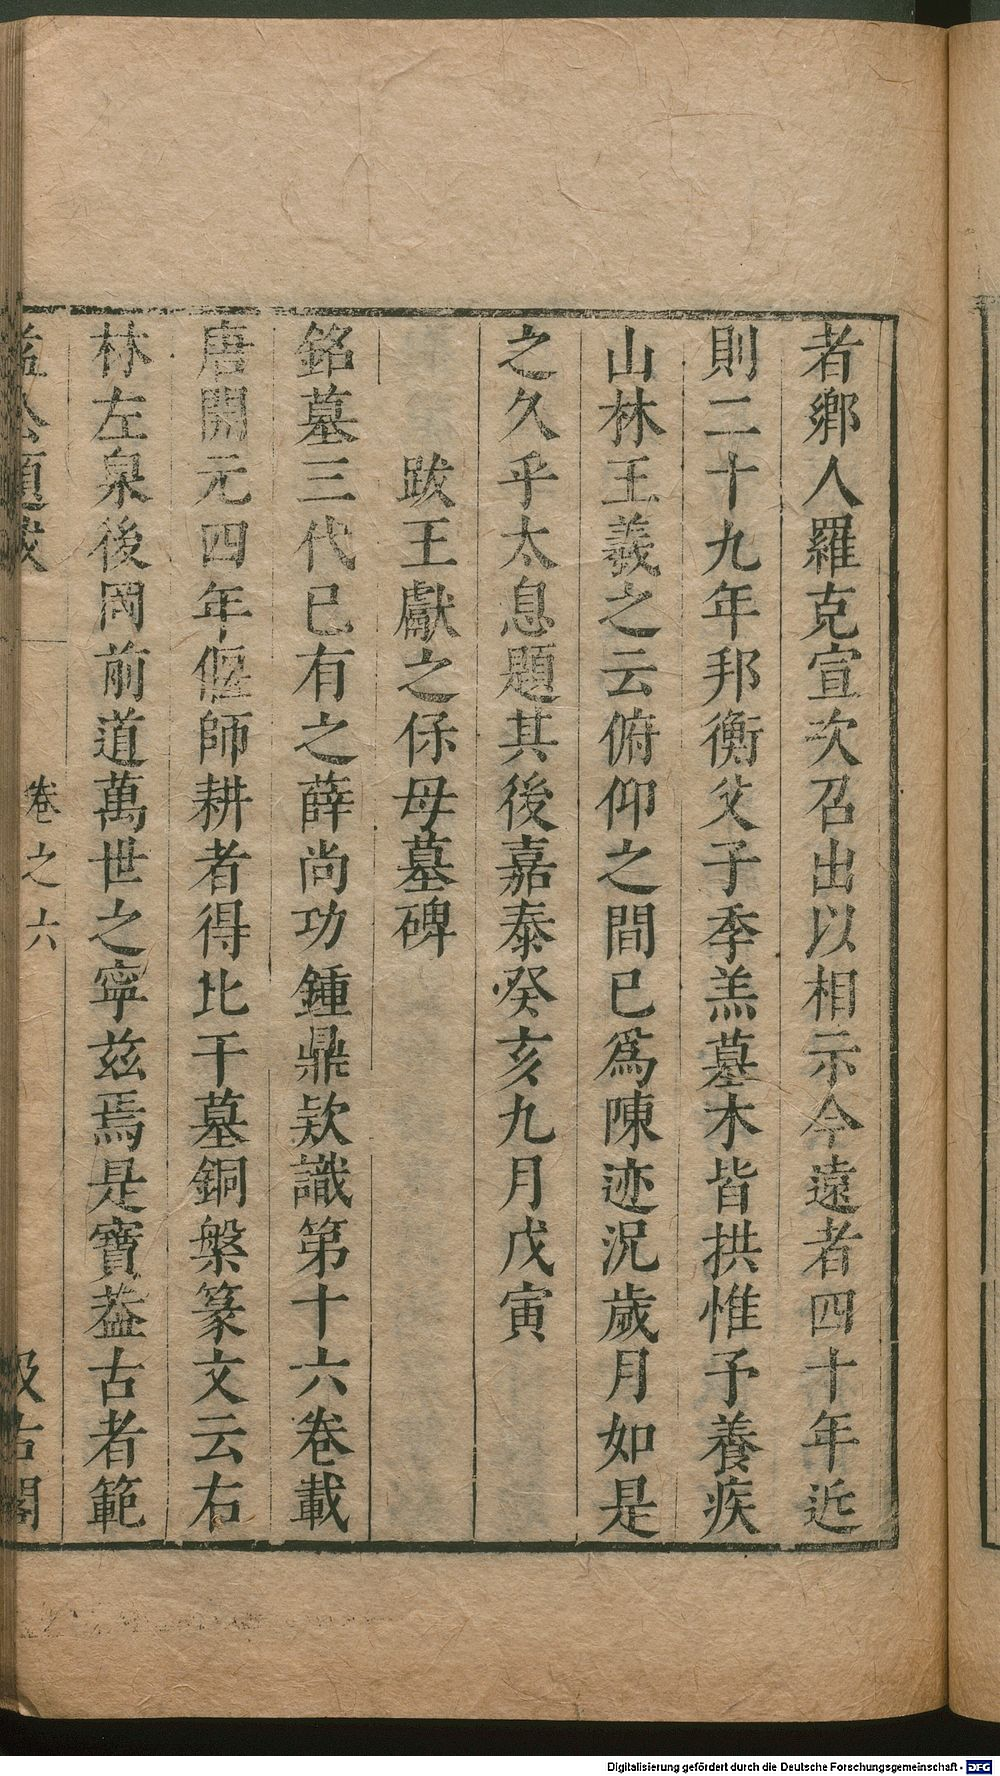 者鄉人羅克宣次召出以相示今遠者四十年近
則二十九年邦衡父子季羔墓木皆拱惟予養疾
山林王羲之云俯仰之間已爲陳迹況歲月如是
之久乎太息題其後嘉泰癸亥九月戊寅
跋王獻之保母墓碑
銘墓三代已有之薛尚功鍾鼎欵識第十六卷載
唐開元四年偃師耕者得比干墓銅槃篆文云右
林左泉後岡前道萬世之寧兹焉是寶葢古者範
益公題跋
卷之六
汲古閣
Digitalisierung gefördert durch die Deutsche Forschungsgemeinschaft - DFG